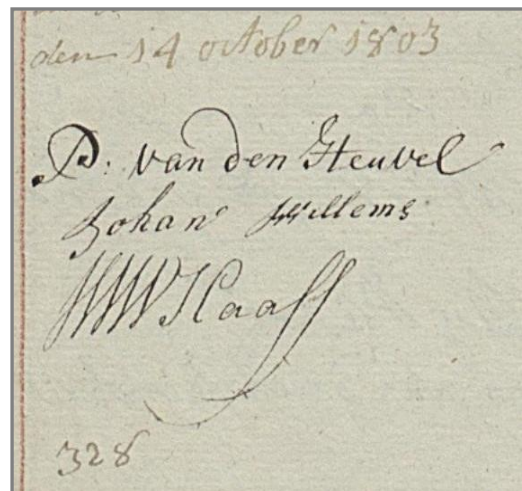 den 14 october 1803
P. van den Heuvel
Johan Willems
Haaff
328